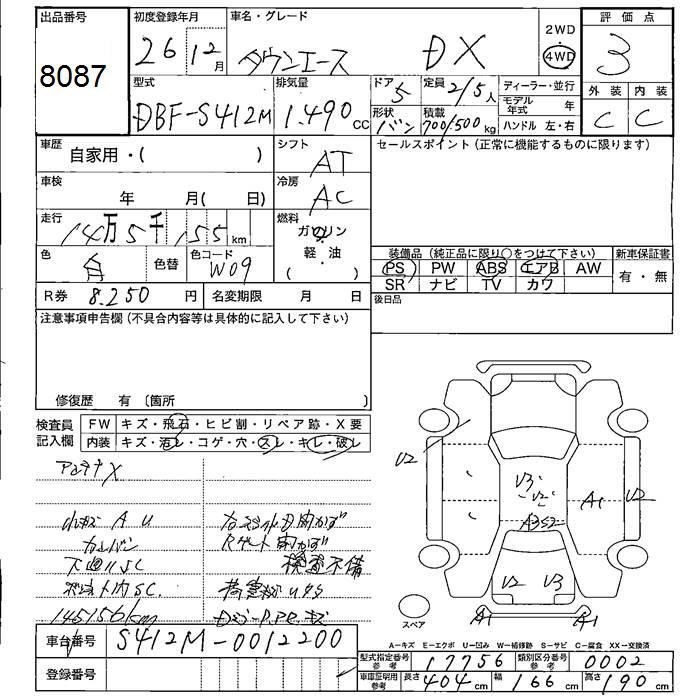 出品番号
8087
初度登録年月
26 12月
車名・グレード
タウンエース DX
2WD
4WD
評価点
3
外装 内装
C C
型式
DBF-S412M
排気量
1.490 cc
ドア 5
形状 バン
定員 2/5人
積載 700/500 kg
ディーラー・並行
モデル年式 年
ハンドル 左・右
車歴 自家用・( )
シフト AT
セールスポイント (正常に機能するものに限ります)
車検 年 月( 日)
冷房 AC
走行 14万5千155km
燃料
ガソリン
軽・油
( )
色 白 色替
色コード W09
装備品 (純正品に限り○をつけて下さい)
新車保証書
PS PW ABS エアB AW
有・無
SR ナビ TV カワ
R券 8.250円
名変期限 月 日
後日品
注意事項申告欄 (不具合内容等は具体的に記入して下さい)
修復歴 有 〔箇所 〕
検査員記入欄
FW キズ・飛石・ヒビ割・リペア跡・X要
内装 キズ・汚レ・コゲ・穴・スレ・キレ・破レ
アンテナX
A U
検査不備
145156km
U2
U3
U2
A1
U2
A3S2
U2
U3
A1
A1
スペア
A－キズ E－エクボ U－凹み W－補修跡 S－サビ C－腐食 XX－交換済
車台番号 S412M-0012200
登録番号
型式指定番号 参考 17756
類別区分番号 参考 0002
車庫証明用 参考
長さ 404cm
幅 166cm
高さ 190cm